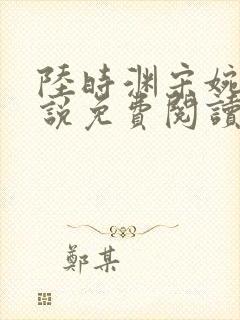 陸時渊宋婉
說免費閱讀
鄭某